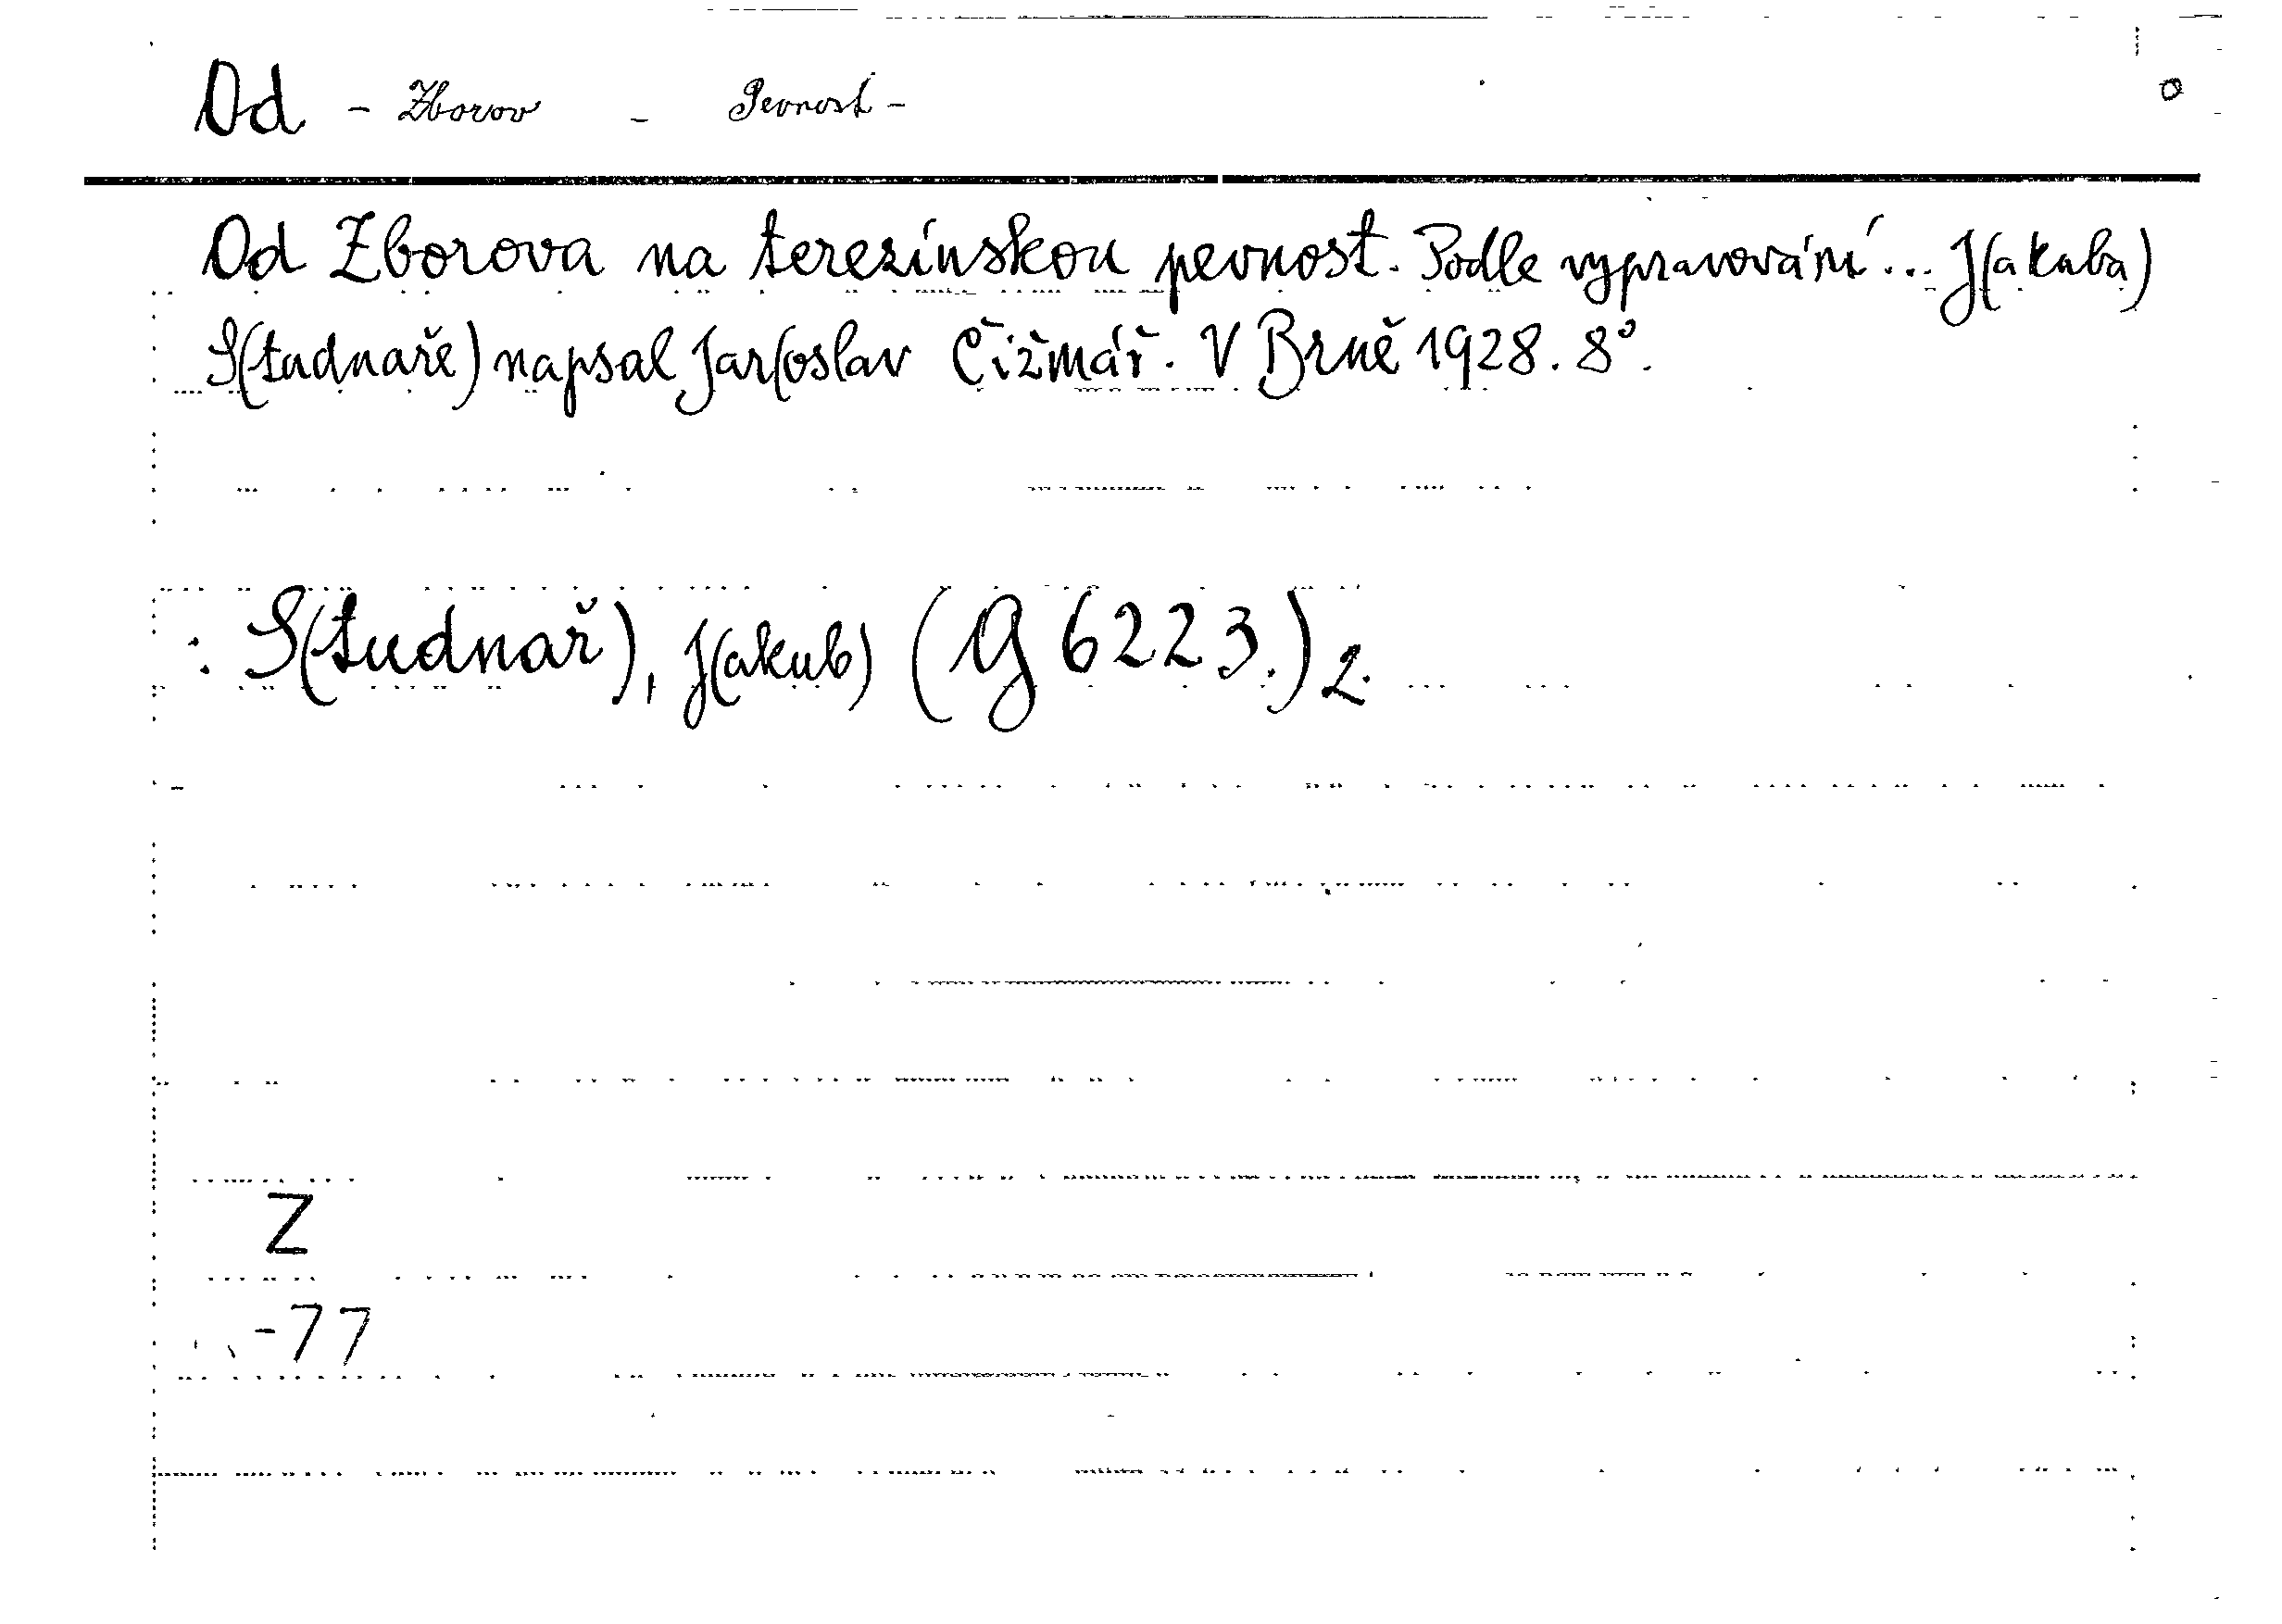 Od - Zborov - Pevnost -
Od Zborova na terezínskou pevnost. Podle vypravování... J(akuba)
S(tudnaře) napsal Jar(oslav Čižmář. V Brně 1928. 8°.
: S(tudnař), J(akub) (G 6223.) 2.
Z
-77